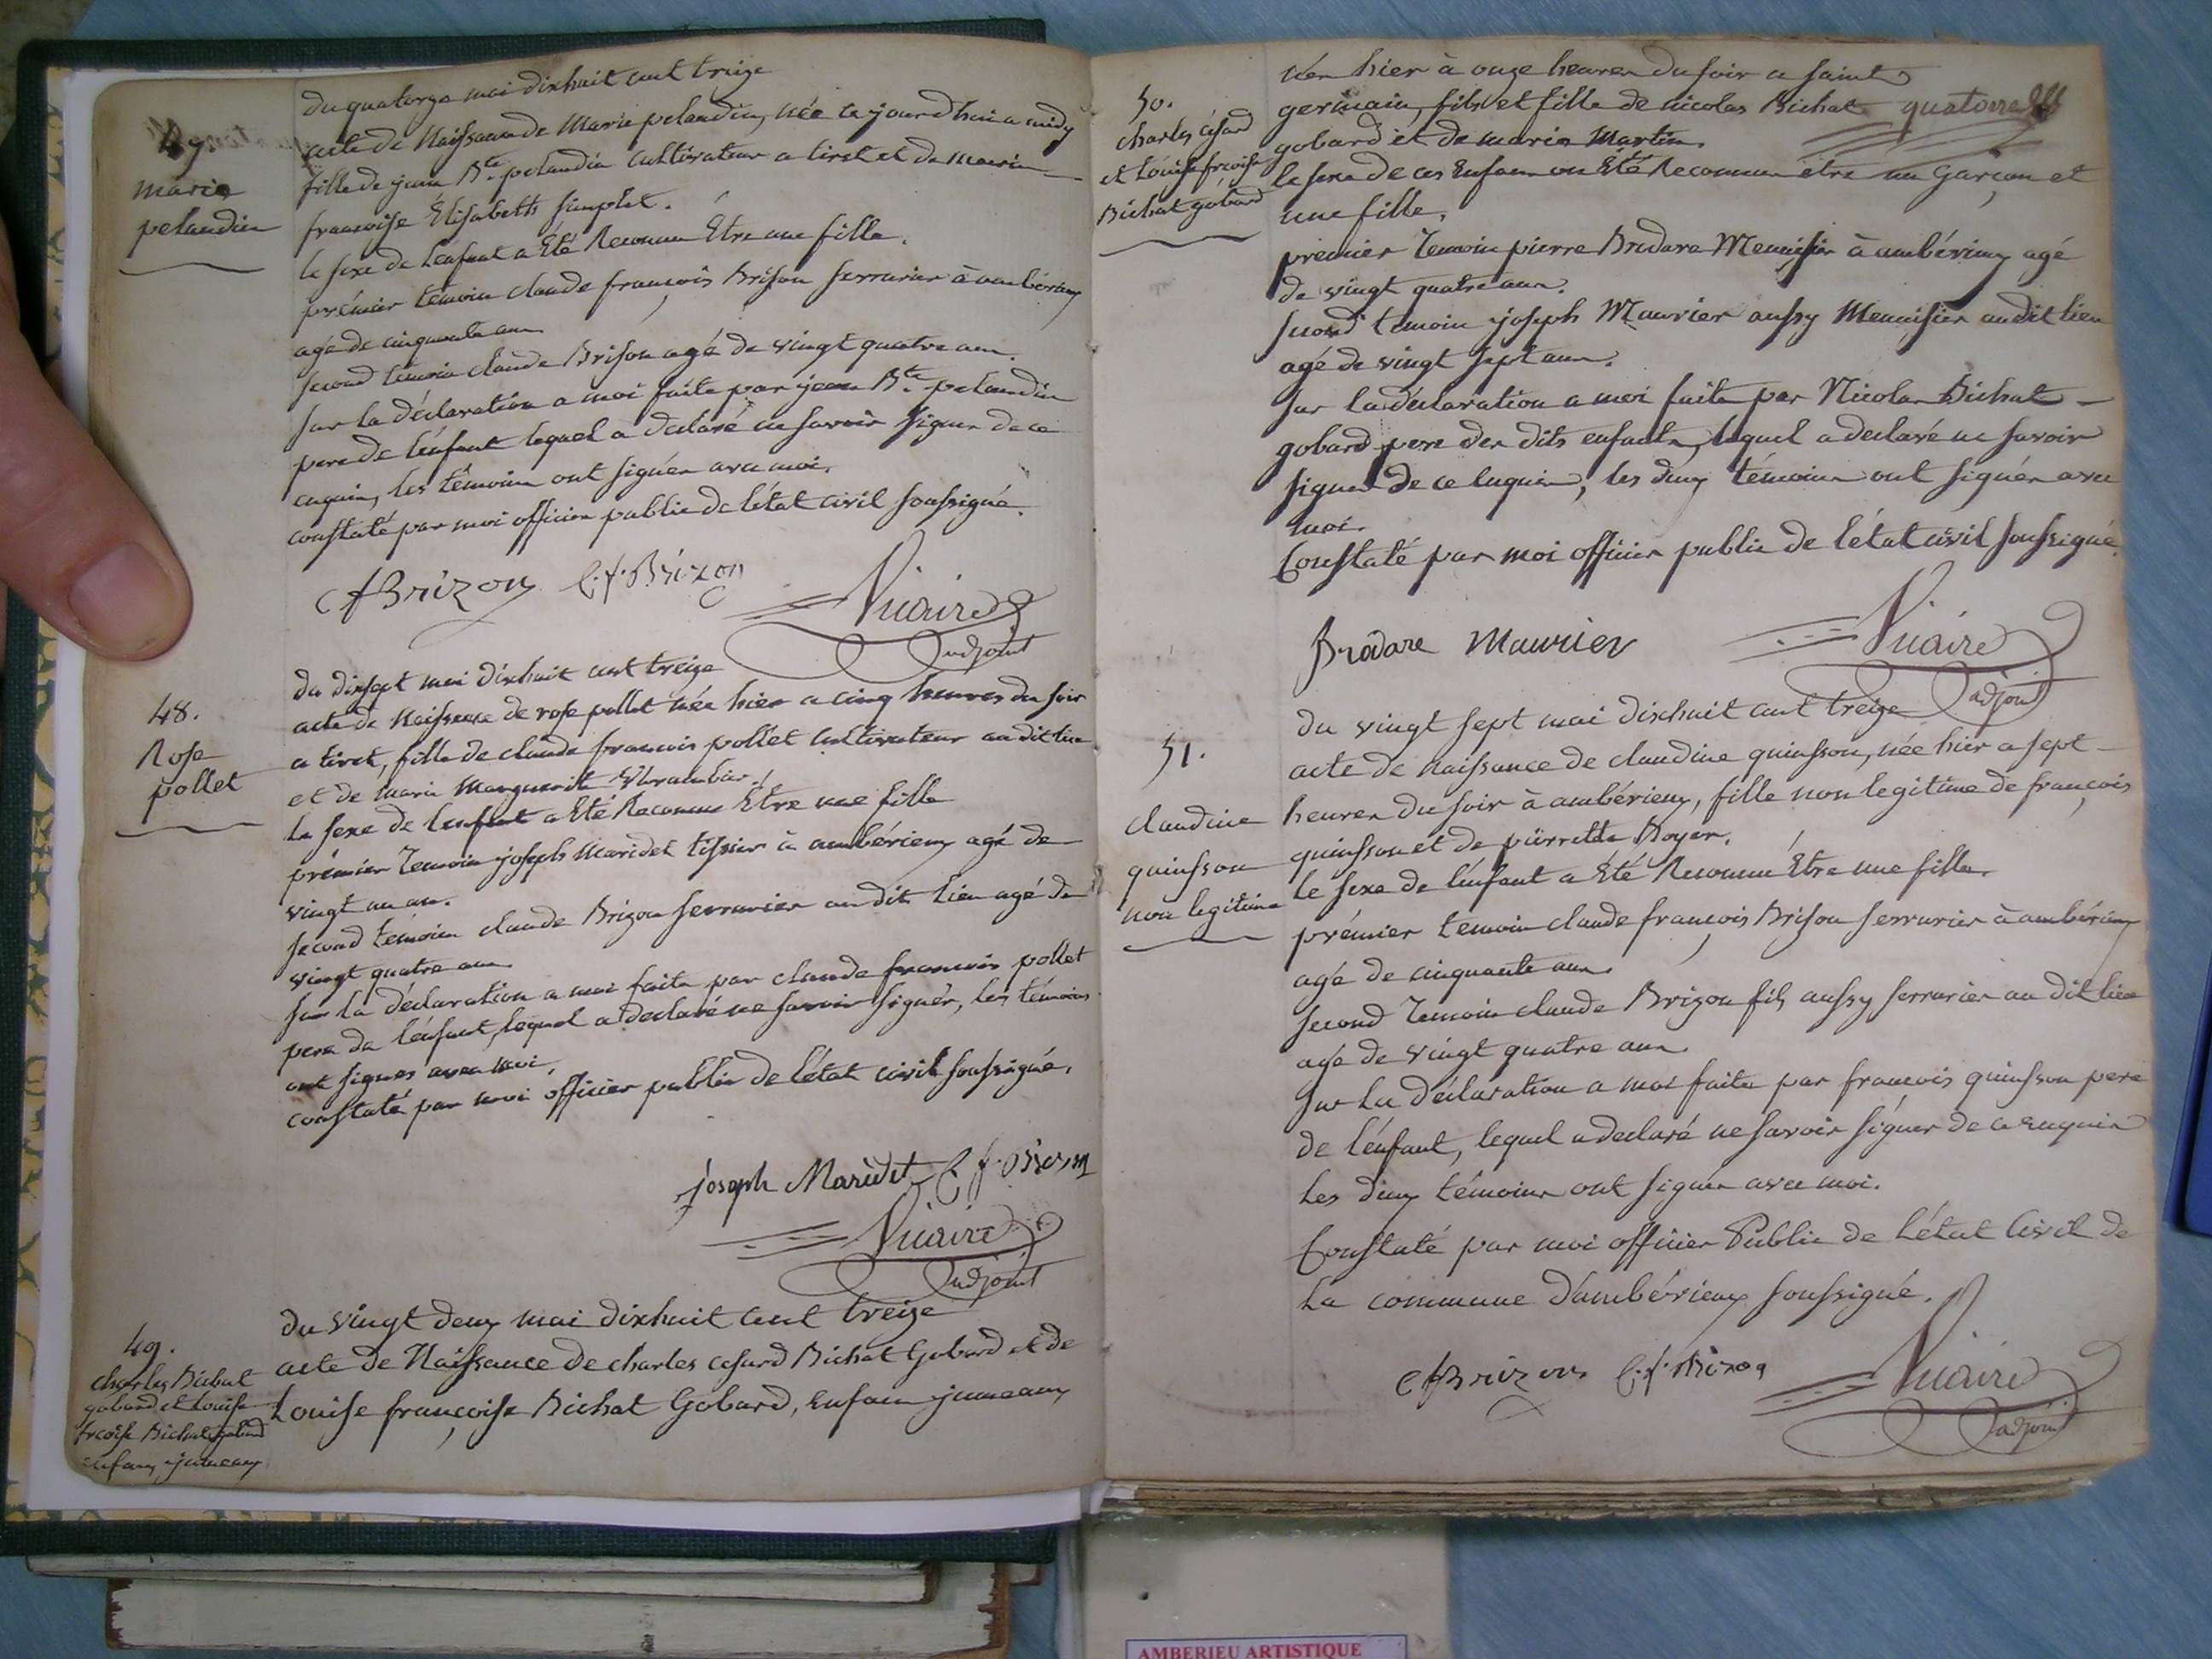 du quatorze mai dixhuit cent treize
marie
pelandin
acte de Naissance de Marie pelandin, née ce jourd'hui a midy
fille de jean Bte. pelandin Cultivateur a tiret et de
françoise Elisabeth simplet.
le sexe de l'enfant a Été Reconnu Etre une fille.
prémier témoin claude françois Brison serrurier à ambérieux
agé de cinquante ans
second témoin claude Brison agé de vingt quatre ans.
sur la déclaration a moi faite par jean Bte. pelandin
pere de l'enfant lequel a declaré ne savoir signer de ce
enquis, les témoins ont signés avec moi.
constaté par moi officier public de l'état civil soussigné.
C f Brizon C. f. Brizon
Vicaire
adjoint
48.
Rose
pollet
du dixsept mai dixhuit cent treize
acte de Naissance de rose pollet née hier a cinq heures du soir
a tiret, fille de claude françois pollet Cultivateur au dit lieu
et de marie Marguerite
le sexe de l'enfant a Eté Reconnu Etre une fille
prémier temoin joseph Maridet tissier à ambérieux agé de
vingt un an.
second témoin claude Brizon serrurier au dit lieu agé de
vingt quatre ans
sur la déclaration a moi faite par claude francois pollet
pere de l'enfant, lequel a declaré ne savoir signer, les témoins
ont signés avec moi.
constaté par moi officier public de l'état civil soussigné.
joseph Maridet C f. Brison
Vicaire
adjoint
49.
charles Bichat
gobard et Louise
frcoise Bichat gobard
enfans jumeaux
du vingt deux mai dixhuit cent treize
acte de Naissance de charles cesard Bichat Gobard et de
Louise françoise Bichat Gobard, enfans jumeaux
50.
charles césard
et Louise frcoise
Bichat gobard
nés hier à onze heures du soir a saint
germain, fils et fille de nicolas Bichat quatorze
gobard et de marie Martin.
le sexe de ces enfans ont Eté Reconnu être un garçon et
une fille.
premier temoin pierre Bredare Menuisier à ambérieux agé
de vingt quatre ans.
second temoin joseph Maurier aussy Menuisier au dit lieu
agé de vingt sept ans.
sur la déclaration a moi faite par Nicolas Bichat
gobard pere des dits enfants, lequel a declaré ne savoir
signer de ce enquis, les deux témoins ont signés avec
moi.
Constaté par moi officier public de l'état civil soussigné.
Bredare Maurier
Vicaire
adjoint
51.
claudine
quinsson
non legitime
du vingt sept mai dixhuit cent treize
acte de naissance de claudine quinsson, née hier a sept
heures du soir à ambérieux, fille non legitime de françois
quinsson et de pierrette Royer.
le sexe de l'enfant a Eté Reconnu Etre une fille.
prémier temoin claude françois Brison serrurier à ambérieux
agé de cinquante ans.
second temoin claude Brizon fils aussy serrurier au dit lieu
agé de vingt quatre ans.
sur la déclaration a moi faite par francois quinsson pere
de l'énfant, lequel a declaré ne savoir signer de ce enquis
les deux témoins ont signés avec moi.
Constaté par moi officier Public de l'état Civil de
la commune d'ambérieux soussigné.
C f Brizon C. f. Brizon
Vicaire
adjoint
AMBERIEU ARTISTIQUE